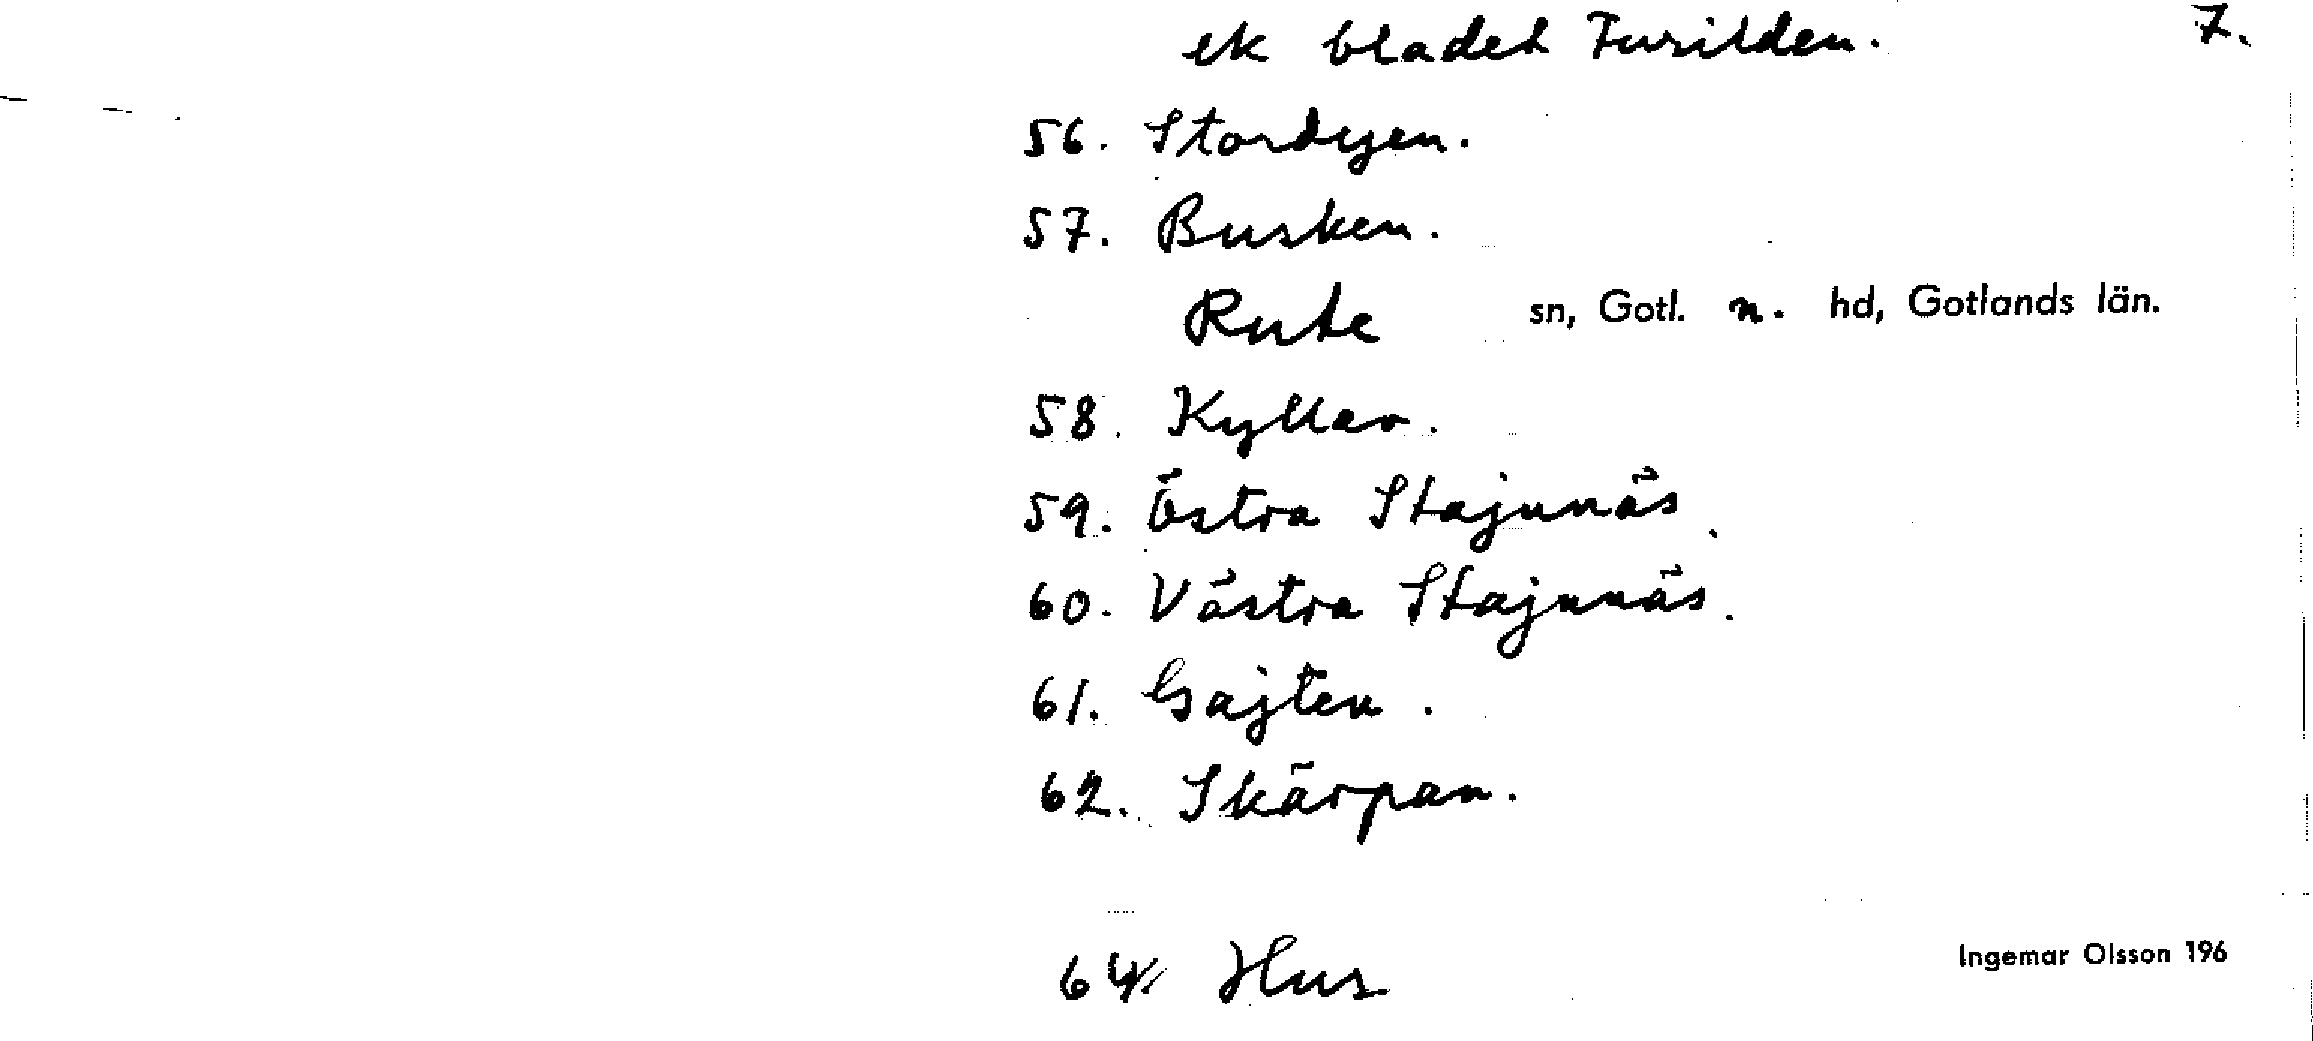 ek bladet Furilden. 7.
56. Stordyen.
57. Busken.
Rute sn, Gotl. n. hd, Gotlands län.
58. Kyller.
59. Östra Stajnnäs.
60. Västra Stajnnäs.
61. Gajten.
62. Skärpan.
64 Hus
Ingemar Olsson 196